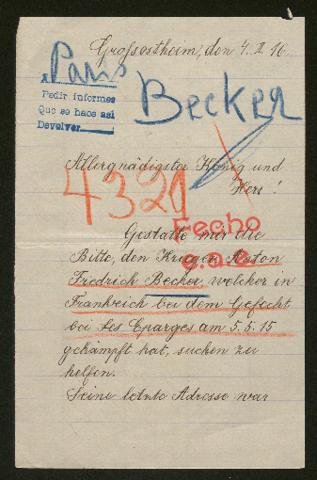 Grossostheim, den 4. II. 16.
Paris
Pedir informes
Que se hace así
Devolver
Becker
Allergnädigster König und
Herr!
4321
Fecho
Gestatte mir die
Bitte, den Krieger Anton
Fredrich Becker welcher in
Frankreich bei dem Gefecht
bei Les Eparges am 5.5.15
gekämpft hat, suchen zu
helfen.
Seine letzte Adresse war